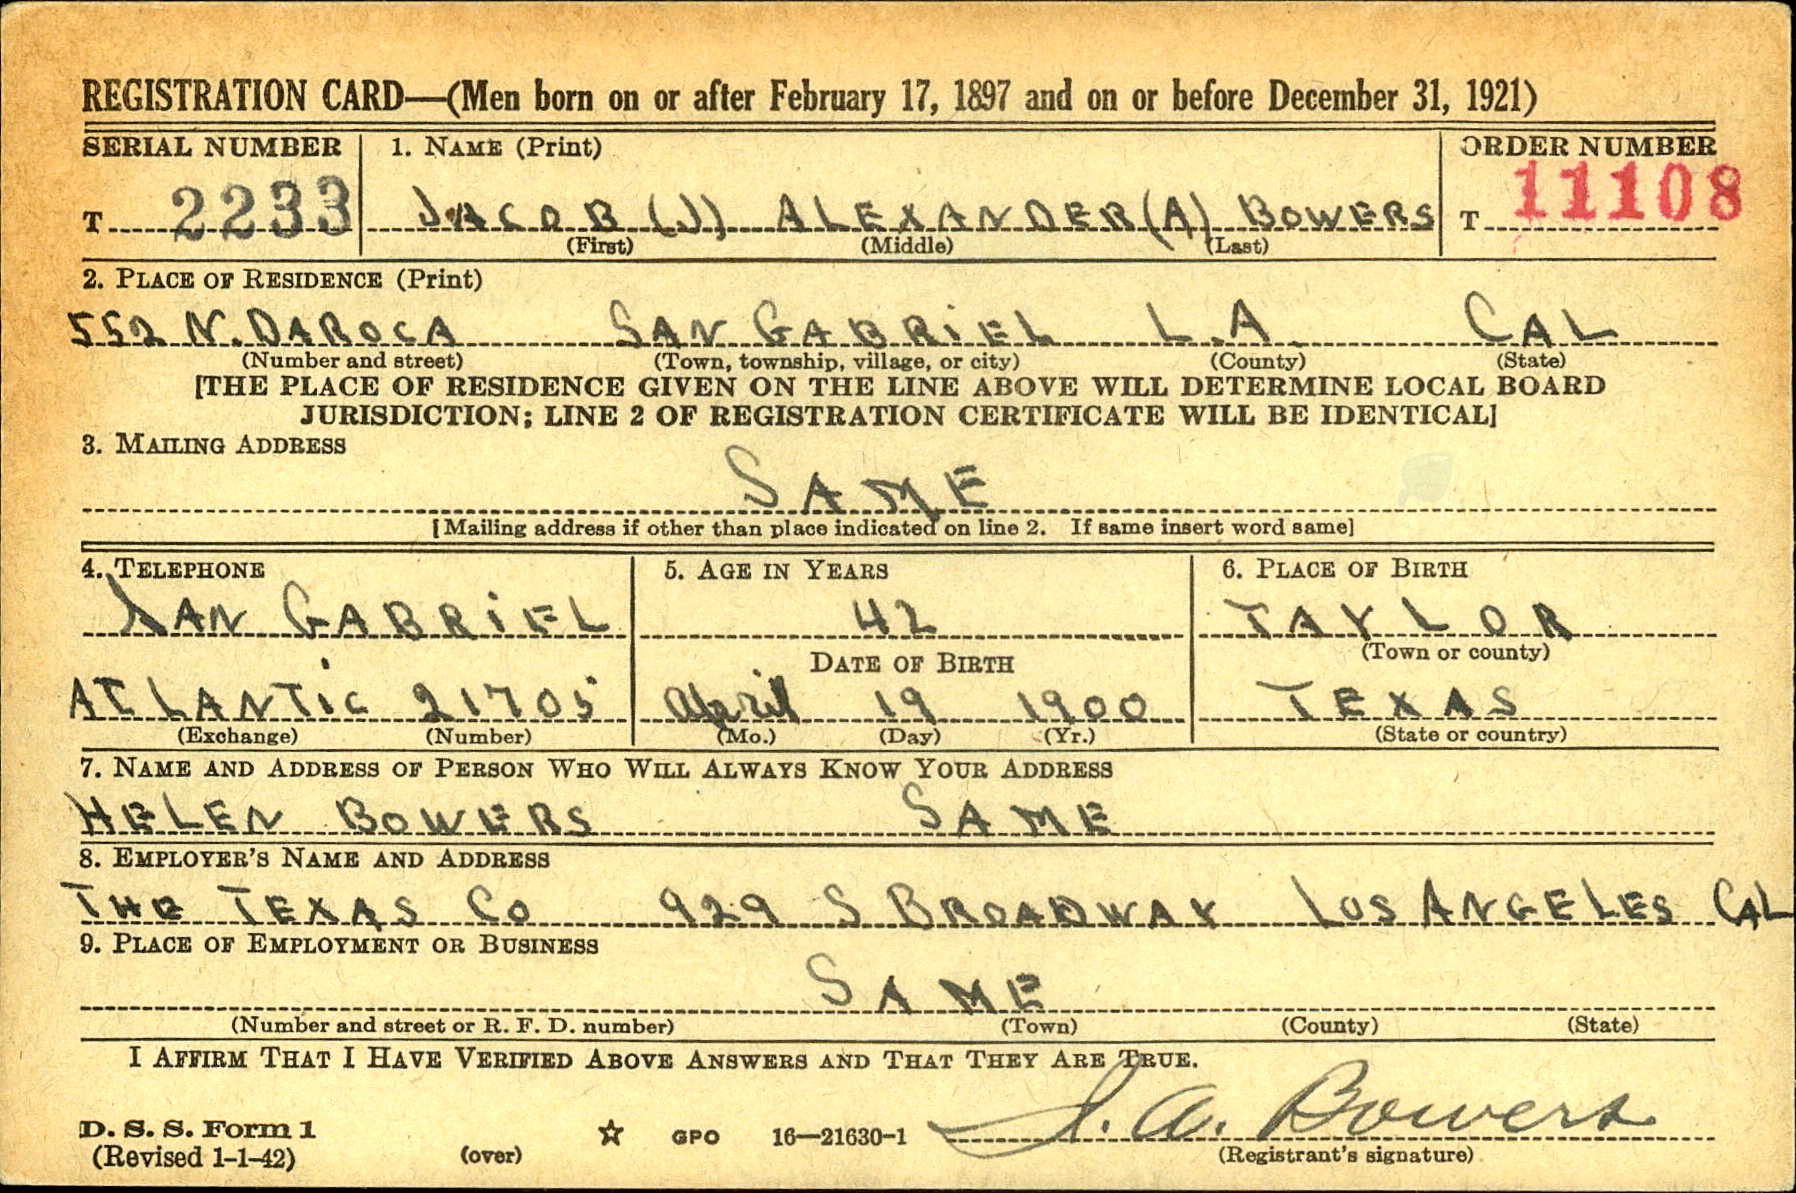 REGISTRATION CARD—(Men born on or after February 17, 1897 and on or before December 31, 1921)
SERIAL NUMBER 1. NAME (Print) ORDER NUMBER
T 2233 JACOB (J) ALEXANDER (A) BOWERS T 11108
(First) (Middle) (Last)
2. PLACE OF RESIDENCE (Print)
552 N. DAROCA SAN GABRIEL L.A. CAL
(Number and street) (Town, township, village, or city) (County) (State)
[THE PLACE OF RESIDENCE GIVEN ON THE LINE ABOVE WILL DETERMINE LOCAL BOARD
JURISDICTION; LINE 2 OF REGISTRATION CERTIFICATE WILL BE IDENTICAL]
3. MAILING ADDRESS
SAME
[Mailing address if other than place indicated on line 2. If same insert word same]
4. TELEPHONE 5. AGE IN YEARS 6. PLACE OF BIRTH
SAN GABRIEL 42 TAYLOR
DATE OF BIRTH (Town or county)
ATLANTIC 21705 April 19 1900 TEXAS
(Exchange) (Number) (Mo.) (Day) (Yr.) (State or country)
7. NAME AND ADDRESS OF PERSON WHO WILL ALWAYS KNOW YOUR ADDRESS
HELEN BOWERS SAME
8. EMPLOYER'S NAME AND ADDRESS
THE TEXAS CO 929 S BROADWAY LOS ANGELES CAL
9. PLACE OF EMPLOYMENT OR BUSINESS
SAME
(Number and street or R. F. D. number) (Town) (County) (State)
I AFFIRM THAT I HAVE VERIFIED ABOVE ANSWERS AND THAT THEY ARE TRUE.
D. S. S. Form 1 GPO 16—21630-1 J. A. Bowers
(Revised 1-1-42) (over) (Registrant's signature)